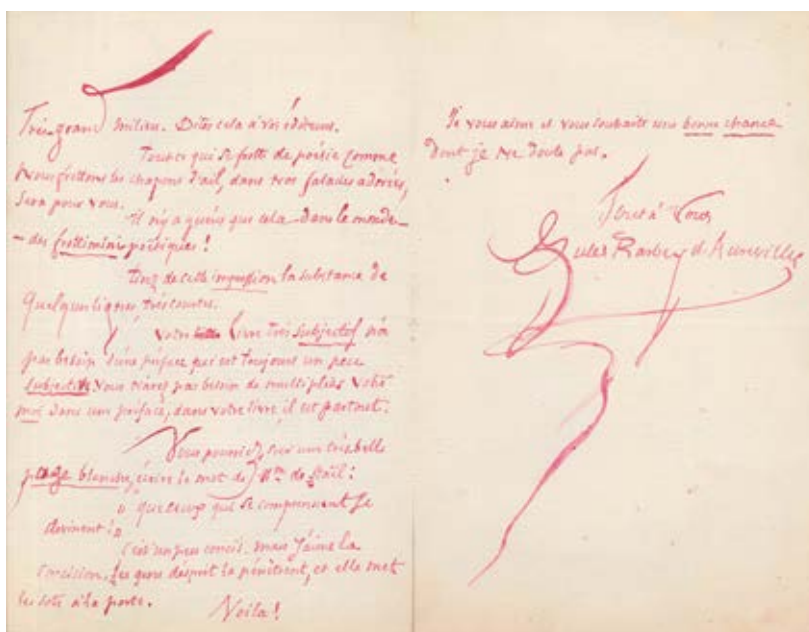 Très grand milieu. Dites cela à vos éditeurs.
Tout ce qui se frotte de poésie comme
nous frottons les chapons d'ail, dans nos salades adorées,
sera pour vous.
Il n'y a guères que cela dans le monde
- des frottiminis poëtiques !
Tirez de cette impression la substance de
quelques lignes très courtes.
Votre livre très subjectif n'a
pas besoin d'une préface qui est toujours un peu
subjective. Vous n'avez pas besoin de multiplier votre
moi dans une préface, dans votre livre il est partout.
Vous pourriez, sur une très belle
page blanche, écrire le mot de Mme de Staël :
« que ceux qui se comprennent se
devinent ! »
C'est un peu concis, mais j'aime la
concision. Les gens d'esprit la pénètrent, et elle met
les sots à la porte.
Voilà !
Je vous aime et vous souhaite une bonne chance
dont je ne doute pas.
Tout à vous
Jules Barbey d'Aurevilly